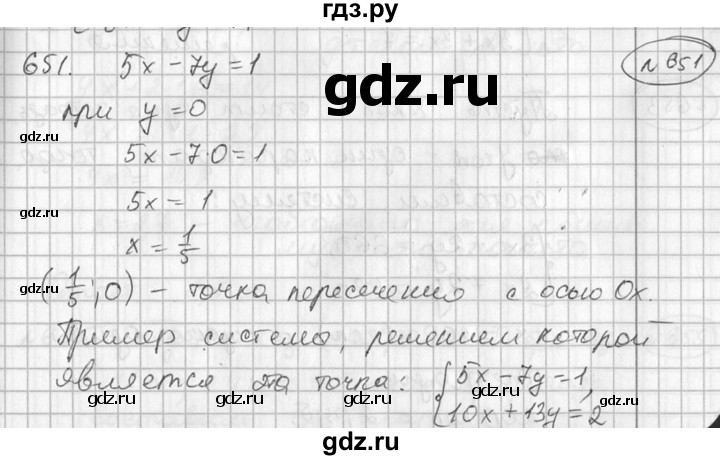 гдз.ру
651. 5x - 7y = 1
N 651
при y = 0
gdz.ru
gdz.ru
gdz.ru
5x - 7·0 = 1
gdz.ru
gdz.ru
5x = 1
gdz.ru
x = 1/5
gdz.ru
gdz.ru
(1/5; 0) - точка пересечения с осью Ox.
gdz.ru
gdz.ru
Пример системы, решением которой
является эта точка: { 5x - 7y = 1,
gdz.ru
gdz.ru
gdz.ru
10x + 13y = 2
gdz.ru